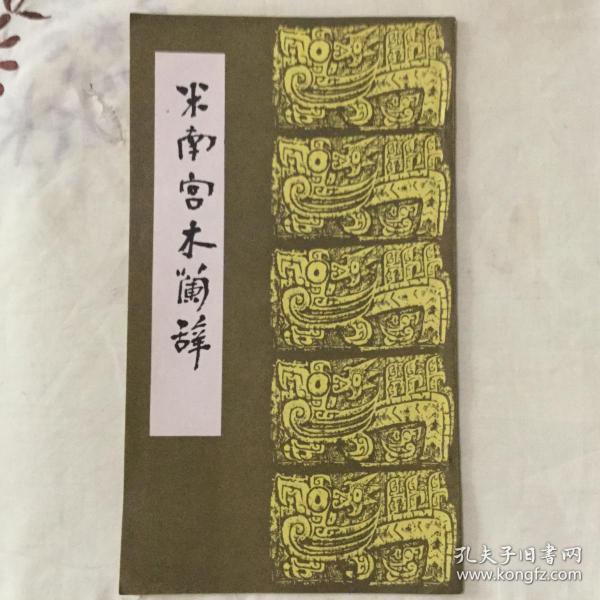 米南宫木蘭辞
孔夫子旧書网
www.kongfz.com